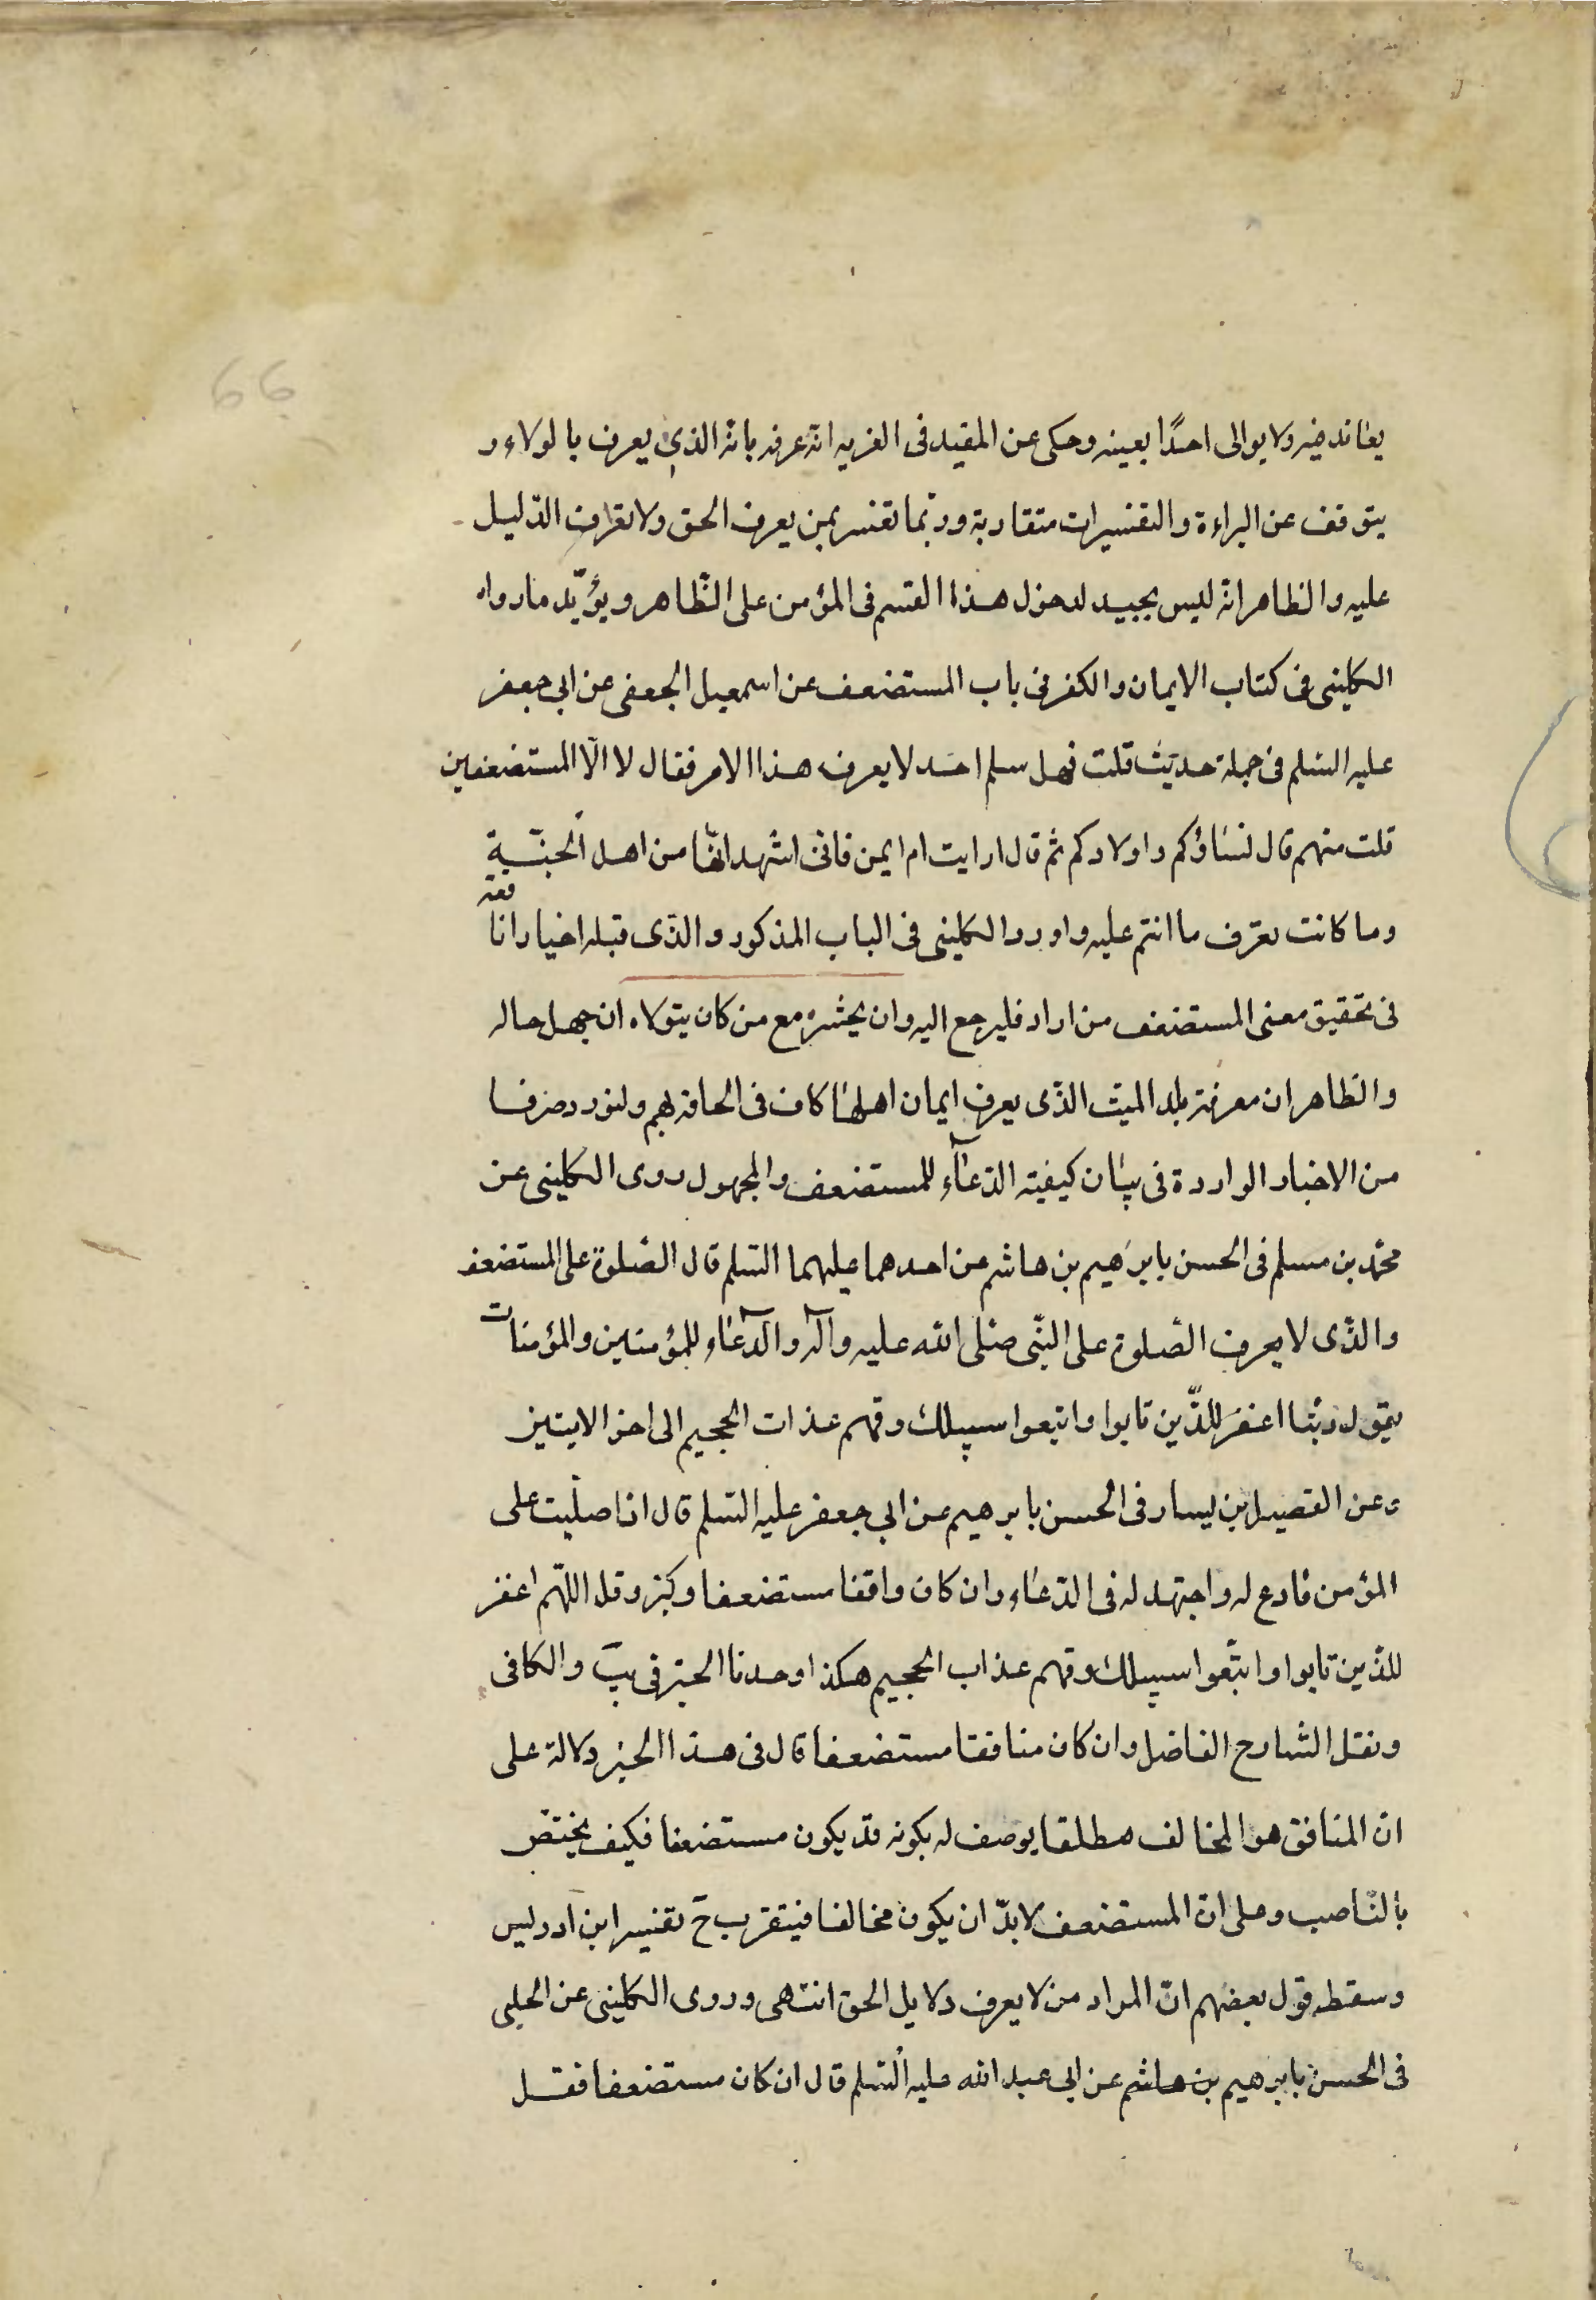 66
يعاند فيه ولا يوالى احدًا بعينه وحكى عن المفيد فى الغريه انه عرفه بانه الذي يعرف بالولاء و
يتوقف عن البراءة والتفسيرات متقاربة وربّما تفسر بمن يعرف الحق ولا تعرف الدّليل
عليه والظاهر انه ليس بجيد لدخول هذا القسم فى المؤمن على الظّاهر ويؤيّد ما رواه
الكلينى فى كتاب الايمان والكفر فى باب المستضعف عن اسمعيل الجعفى عن ابى جعفر
عليه السّلم فى جملة حديث قلت فهل سلم احد لا يعرف هذا الامر فقال لا الّا المستضعفين
قلت منهم قال نساؤكم واولادكم ثم قال ارايت ام ايمن فانى اشهد انّها من اهل الجنّة
وما كانت تعرف ما انتم عليه واورد الكلينى فى الباب المذكور والذّى قبله اخبارا نافعة
فى تحقيق معنى المستضعف من اراد فليرجع اليه وان يحشره مع من كان يتولاه ان جهل حاله
والظاهر ان معرفة بلد الميت الذّى يعرف ايمان اهلها كاف فى الحاقه بهم ولنورد
من الاخبار الواردة فى بيان كيفية الدّعآء للمستضعف والمجهول روى الكلينى عن
محمّد بن مسلم فى الحسن بابرٰهيم بن هاشم عن احدهما عليهما السّلم قال الصّلوة على المستضعف
والذّى لا يعرف الصّلوة على النّبى صلّى الله عليه وآله والدّعاء للمؤمنين والمؤمنات
يقول ربّنا اغفر للذّين تابوا واتبعوا سبيلك وقهم عذاب الجحيم الى اخر الايتين
وعن الفضيل بن يسار فى الحسن بابرهيم عن ابى جعفر عليه السّلم قال اذا صليت على
المؤمن فادع له واجتهد له فى الدّعاء وان كان واقفا مستضعفا وكبر وقل اللّهم اغفر
للذّين تابوا واتبّعوا سبيلك وقهم عذاب الجحيم هكذا وجدنا الخبر فى يب والكافى
ونقل الشارح الفاضل وان كان منافقا مستضعفا قال فى هذا الخبر دلالة على
انّ المنافق هو المخالف مطلقا يوصف له بكونه قد يكون مستضعفا فكيف يختصّ
بالنّاصب وعلى انّ المستضعف لا بدّ ان يكون مخالفا فيتقرب ح تفسير ابن ادريس
وسقط قول بعضهم انّ المراد من لا يعرف دلايل الحق انتهى وروى الكلينى عن الحلبى
فى الحسن بابرهيم بن هاشم عن ابى عبد الله عليه السّلم قال ان كان مستضعفا فقل